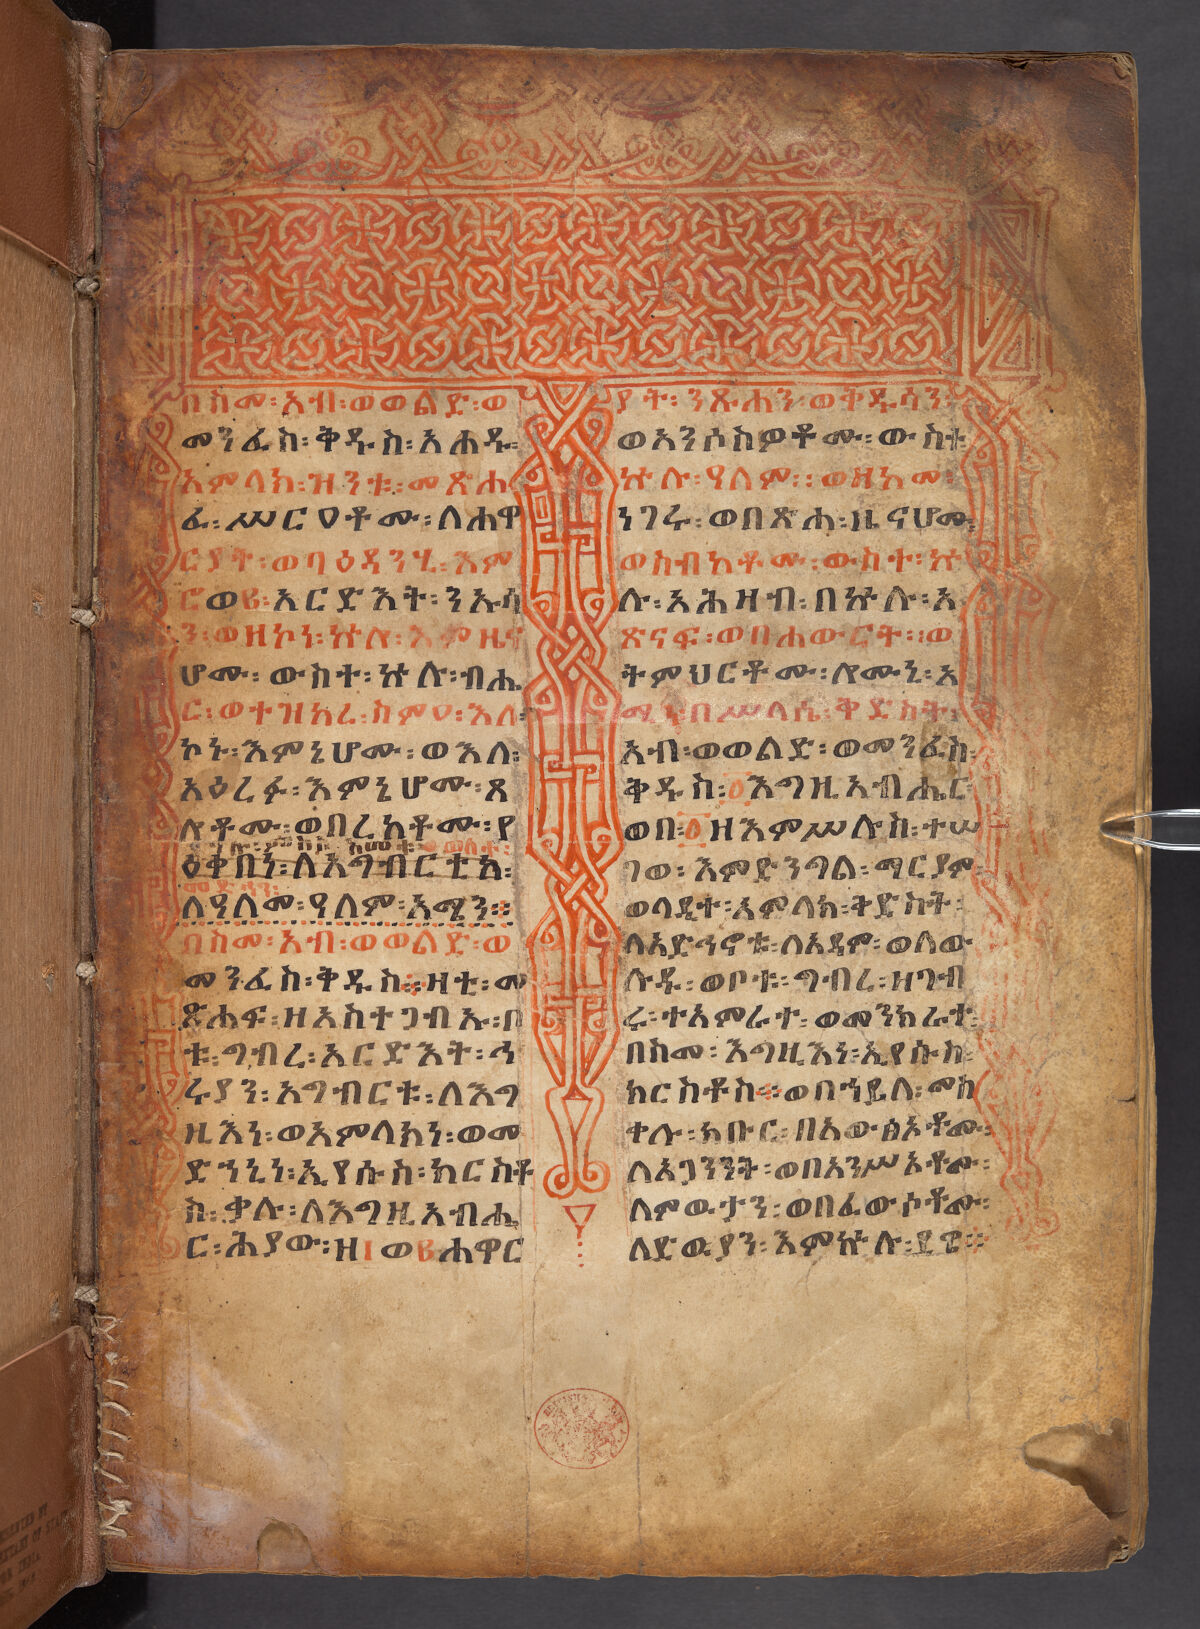 በስመ፡ አብ፡ ወወልድ፡ ወ
መንፈስ፡ ቅዱስ፡ አሐዱ፡
አምላክ፡ ዝንቱ፡ መጽሐ
ፈ፡ ሥርዐቶሙ፡ ለሐዋ
ርያት፡ ወባዕዳንሂ፡ እም
ወ፡ አርድእት፡ ንኡሳ
ን፡ ወዘኮነ፡ ኵሉ፡ እምዜና
ሆሙ፡ ውስተ፡ ኵሉ፡ ብሔ
ር፡ ወተዝእረ፡ ስምዐ፡ እለ፡
ኮኑ፡ እምኔሆሙ፡ ወእለ፡
አዕረፉ፡ እምኔሆሙ፡ ጸ
ሎቶሙ፡ ወበረከቶሙ፡ የ
ዕቀበነ፡ ለአግብርቲአ፡
ለዓለመ፡ ዓለም፡ አሜን፨
በስመ፡ አብ፡ ወወልድ፡ ወ
መንፈስ፡ ቅዱስ፨ ዛቲ፡ መ
ጽሐፍ፡ ዘአስተጋብኡ፡ በ
ቱ፡ ግብረ፡ አርድእት፡ ኅ
ሩያን፡ አግብርቱ፡ ለእግ
ዚእነ፡ ወአምላክነ፡ ወመ
ድኀኒነ፡ ኢየሱስ፡ ክርስቶ
ስ፡ ቃሉ፡ ለእግዚአብሔ
ር፡ ሕያው፡ ዘ፲ወ፪ሐዋር
ያት፡ ንጹሐን፡ ወቅዱሳን፡
ወአንሶስዎቶሙ፡ ውስተ፡
ኵሉ፡ ዓለም፡ ወዘከመ፡
ነገሩ፡ ወበጽሐ፡ ዜናሆሙ፡
ወስብከቶሙ፡ ውስተ፡ ኵ
ሉ፡ አሕዛብ፡ በኵሉ፡ አ
ጽናፍ፡ ወበሐውርት፡ ወ
ትምህርቶሙ፡ ለሙኒ፡ አ
በሥላሴ፡ ቅድስት፡
አብ፡ ወወልድ፡ ወመንፈስ፡
ቅዱስ፡ ፩እግዚአብሔር፡
ወበ፡ ፩ዘእምሥሉስ፡ ተሠ
ገወ፡ እምድንግል፡ ማርያም፡
ወላዲተ፡ አምላክ፡ ቅድስት፡
ለአድኅኖቱ፡ ለአዳም፡ ወለው
ሉዱ፡ ወቦቱ፡ ግብረ፡ ዘገብ
ሩ፡ ተአምራተ፡ ወመንክራተ፡
በስመ፡ እግዚእነ፡ ኢየሱስ፡
ክርስቶስ፨ ወበኀይለ፡ መስ
ቀሉ፡ ክቡር፡ በአውፅኦቶሙ፡
ለአጋንንት፡ ወበአንሥኦቶሙ፡
ለምዉታን፡ ወበፈውሶቶሙ፡
ለድዉያን፡ እምኵሉ፡ ደዌ፨